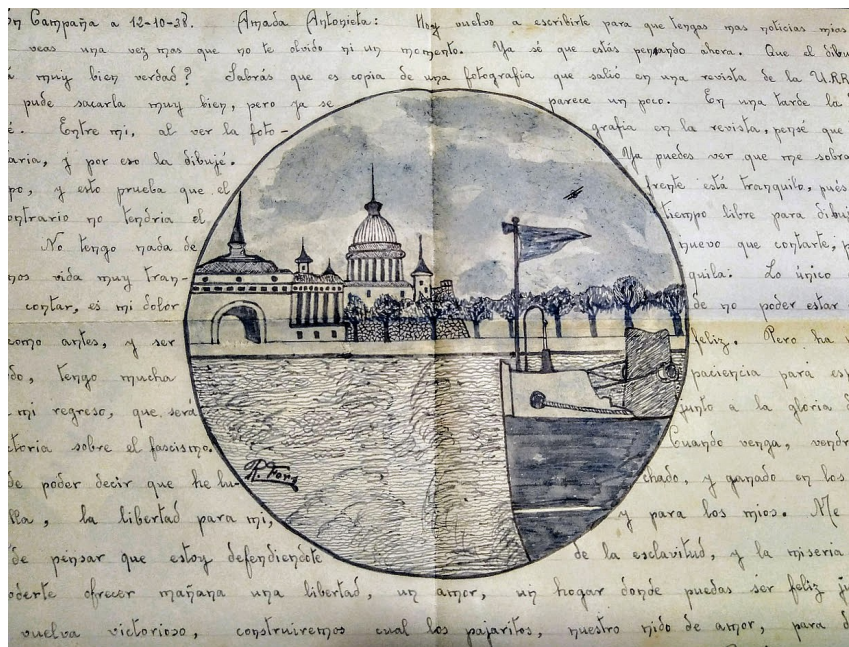 Campaña a 12-10-38. Amada Antonieta: Hoy vuelvo a escribirte para que tengas mas noticias mias
veas una vez mas que no te olvido ni un momento. Ya sé que estás pensando ahora. Que el dibu
muy bien verdad? Sabrás que es copia de una fotografia que salió en una revista de la U.R.R
pude sacarla muy bien, pero ya se parece un poco. En una tarde la
é. Entre mi, al ver la foto- grafia en la revista, pensé que
aria, y por eso la dibujé. Ya puedes ver que me sobra
po, y esto prueba que el frente está tranquilo, pués
ontrario no tendria el tiempo libre para dibuj
No tengo nada de nuevo que contarte, p
mos vida muy tran- quila: Lo único
contar, es mi dolor de no poder estar
como antes, y ser feliz. Pero ha
do, tengo mucha paciencia para esp
mi regreso, que será junto a la gloria d
ctoria sobre el fascismo. Cuando venga, vendr
de poder decir que he lu- chado, y ganado en los
lla, la libertad para mi, y para los mios. Me
de pensar que estoy defendiendote de la esclavitud, y la miseria
oderte ofrecer mañana una libertad, un amor, un hogar donde puedas ser feliz ju
vuelva victorioso, construiremos cual los pajaritos, nuestro nido de amor, para d
R. Fors